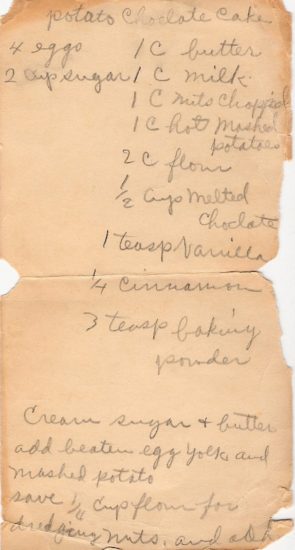 potato Choclate Cake
4 eggs 1 C butter
2 Cup sugar 1 C milk
1 C nuts Chop'd
1 C hot Mashed
potatoes
2 C flour
1/2 Cups Melted
Choclate
1 teasp Vanilla
1/4 Cinnamon
3 teasp baking
powder
Cream sugar + butter
add beaten egg yolk, and
mashed potato
save 1/4 Cup flour for
dredging nuts, and add